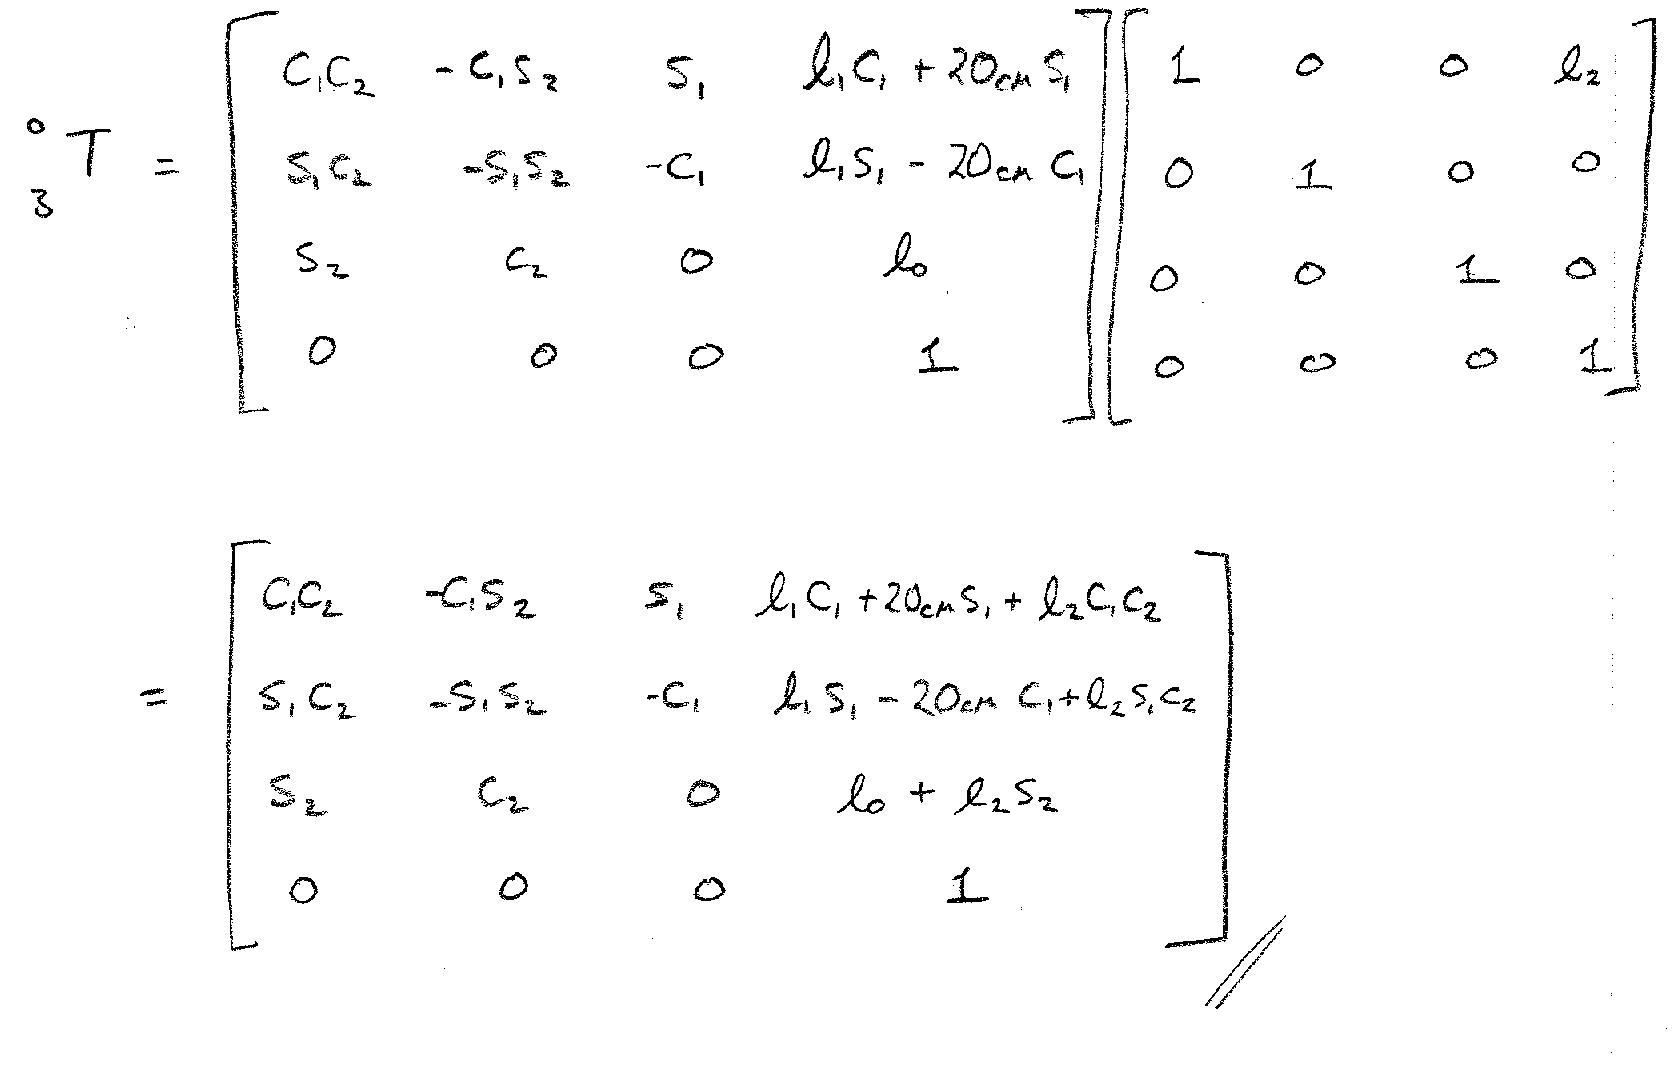 ⁰₃T = [ C₁C₂ -C₁S₂ S₁ l₁C₁ + 20cm S₁ ] [ 1 0 0 l₂ ]
[ S₁C₂ -S₁S₂ -C₁ l₁S₁ - 20cm C₁ ] [ 0 1 0 0 ]
[ S₂ C₂ 0 l₀ ] [ 0 0 1 0 ]
[ 0 0 0 1 ] [ 0 0 0 1 ]
= [ C₁C₂ -C₁S₂ S₁ l₁C₁ + 20cm S₁ + l₂C₁C₂ ]
[ S₁C₂ -S₁S₂ -C₁ l₁S₁ - 20cm C₁ + l₂S₁C₂ ]
[ S₂ C₂ 0 l₀ + l₂S₂ ]
[ 0 0 0 1 ] //